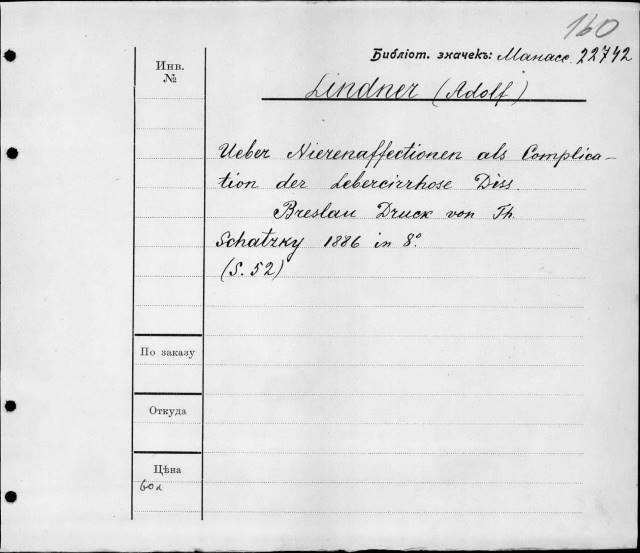 160
Библіот. значекъ: Манасс. 22742
Инв.
№
Lindner (Adolf)
Ueber Nierenaffectionen als Complica-
tion der Lebercirrhose Diss.
Breslau Druck von Th
Schatzky 1886 in 8º
(S. 52)
По заказу
Откуда
Цѣна
60к